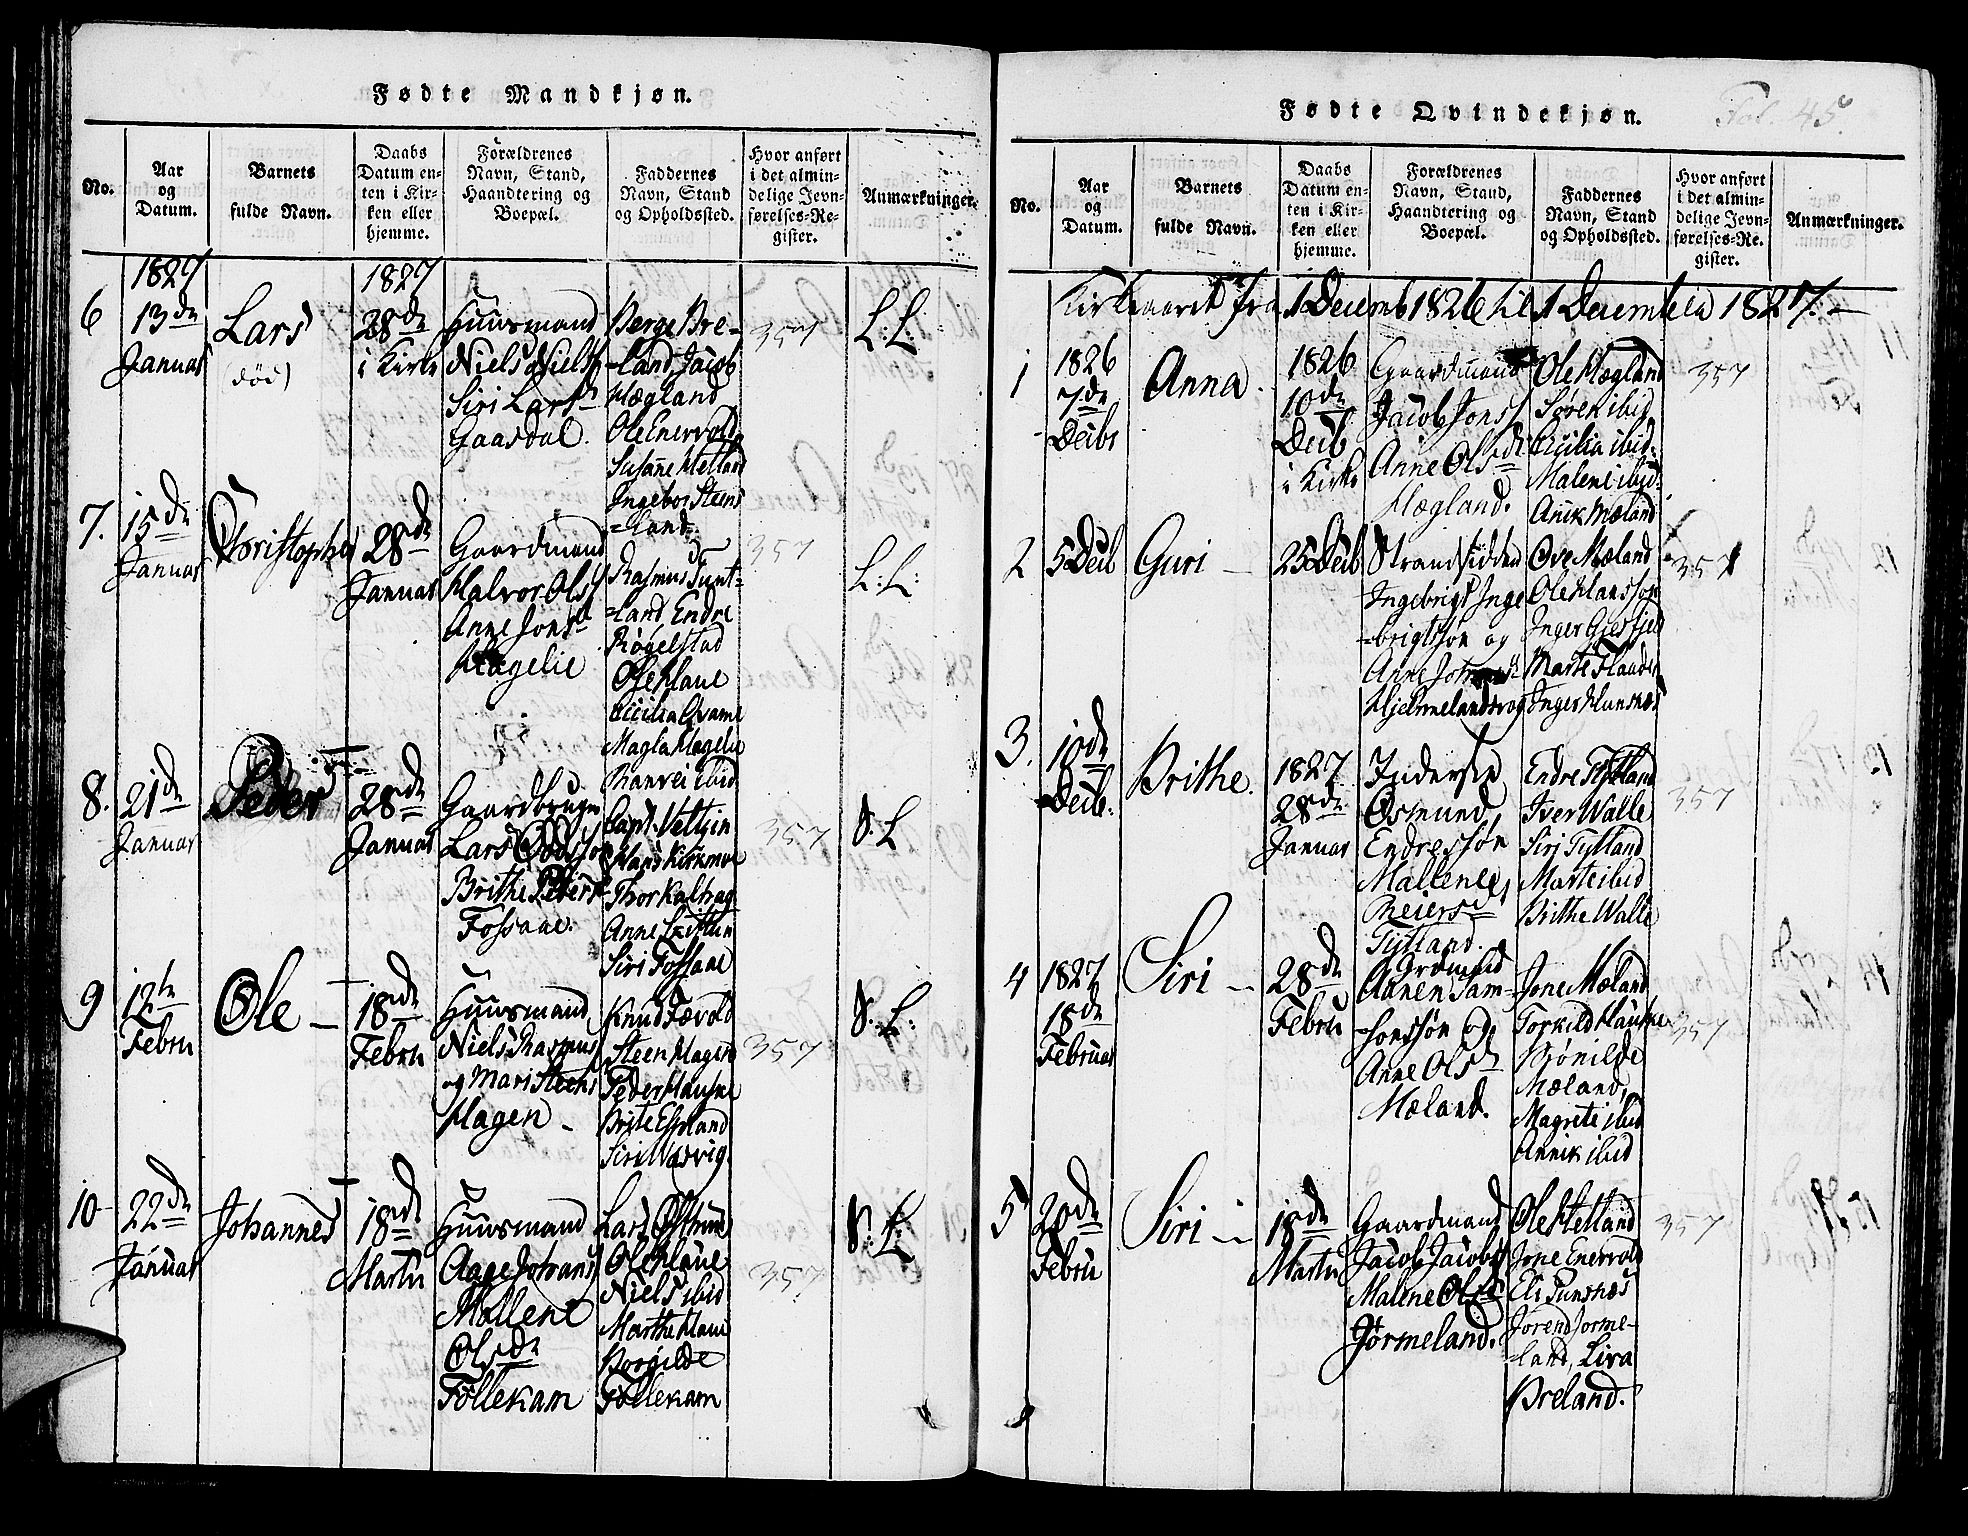 Fødte Mandkjøn.
No.
Aar
og
Datum.
Barnets
fulde Navn.
Daabs
Datum en-
ten i Kir-
ken eller
hjemme.
Forældrenes
Navn, Stand,
Haandtering og
Boepæl.
Faddernes
Navn, Stand
og Opholdssted.
Hvor anført
i det almin-
delige Jevn-
førelses-Re-
gister.
Anmærkninger.
6
1827
13de
Januar
Lars
(død)
1827
28de
i Kirke
Huusmand
Niels Niels
Siri Lars
Gaasdal.
Berge Bre-
-land, Jacob
Hægland
Ole Enervold
Susanne Hetland
Ingebor Steens
=land
357
L: L:
7.
15de
Januar
Christopher
28de
Januar
Gaardmand
Halvor Ols
Anne Jonsd
Hagelie
Rasmus Tunt-
=land Endre
Røgelstad
Ose Haue
Cicilia Qvame
Magla Hagelie
Ranvei ibid
357
L: L:
8.
21de
Januar
Peder
28de
Januar
Gaardbruger
Lars
Brithe Peders
Fossaae.
Capt. Veltzin
Hans Kirkmoe
Thor Kaltvag
Anne
Siri Fossaae
357
S. L
9
12te
Febru
Ole
18de
Febru
Huusmand
Niels Rasmus
og Mari Steens
Hagen
Knud Fævold
Steen Hagen
Peder Hauske
Brite Espeland
Siri Wasvig.
357
S. L:
10
22de
Januar
Johannes
18de
Martii
Huusmand
Aage Johans
Mallene
Olsdr
Tøllekam
Lars
Ole Haue
Niels ibid
Marthe Haue
Borgilde
Tøllekam
357
S. L:
Fødte Qvindekjøn.
Fol. 45.
No.
Aar
og
Datum.
Barnets
fulde Navn.
Daabs
Datum en-
ten i Kir-
ken eller
hjemme.
Forældrenes
Navn, Stand,
Haandtering og
Boepæl.
Faddernes
Navn, Stand
og Opholdssted.
Hvor anført
i det almin-
delige Jevn-
førelses-Re-
gister.
Anmærkninger.
Kirkeaaret fra 1 Decemb 1826 til 1 December 1827.
1
1826
7de
Decbr
Anna
1826
10de
Decb
i Kirke
Gaardmand
Jacob Jons
Anne Olsd
Hægland.
Ole Hægland
Søren ibid
Cecilia ibid.
Malene ibid.
Anik Mæland
357
2
5 Decb
Guri
25 Decb
Strandsidder
Ingebrigt Inge
-brigtsøn og
Anne
Hjelmelandsvog
Ove Mæland
Ole Hanssøn
Inger
Marte
Inger Hunsnæs
357
3.
10de
Decb.
Brithe.
1827
28de
Januar
Inderst
Osmund
Endressøn
Mallene
Reiersd
Tytland.
Endre Tytland
Iver Walle
Siri Tytland
Marte ibid
Brithe Walle
357
4
1827
18de
Februar
Siri
28de
Febru
Gaardmand
Aanen Sam-
-sonsøn og
Anne Olsd
Mæland.
Jone Mæland
Torkild Hauske
Bjønilde
Mæland,
Magrete ibid
Annik ibid
357
5
20de
Febru
Siri
18de
Martii
Gaardmand
Jacob Jacobs
Malene Olsd
Jørmeland.
Ole Hetland
Jone Enervold
Eli Punsnæs
Jorend Jorme-
=land, Liva
Breland.
357